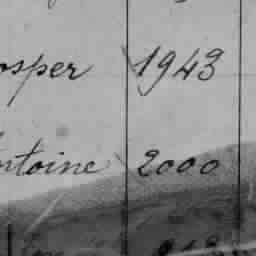 osper 1943
ntoine 2000